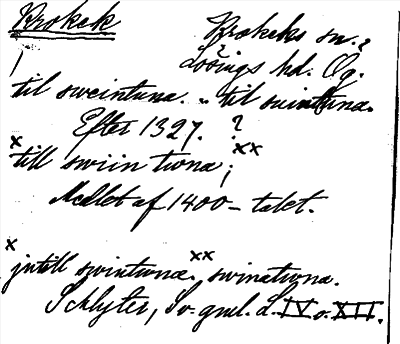 Krokek Krokeks sn.?
Lösings hd. Ög.
til sweintuna. „ til suintuna.
Efter 1327. ?
x till swiin twna ; xx
Medlet af 1400-talet.
x jntill swintuna. xx swinatwna.
Schlyter, Sv. gml. L. IV o. XII.